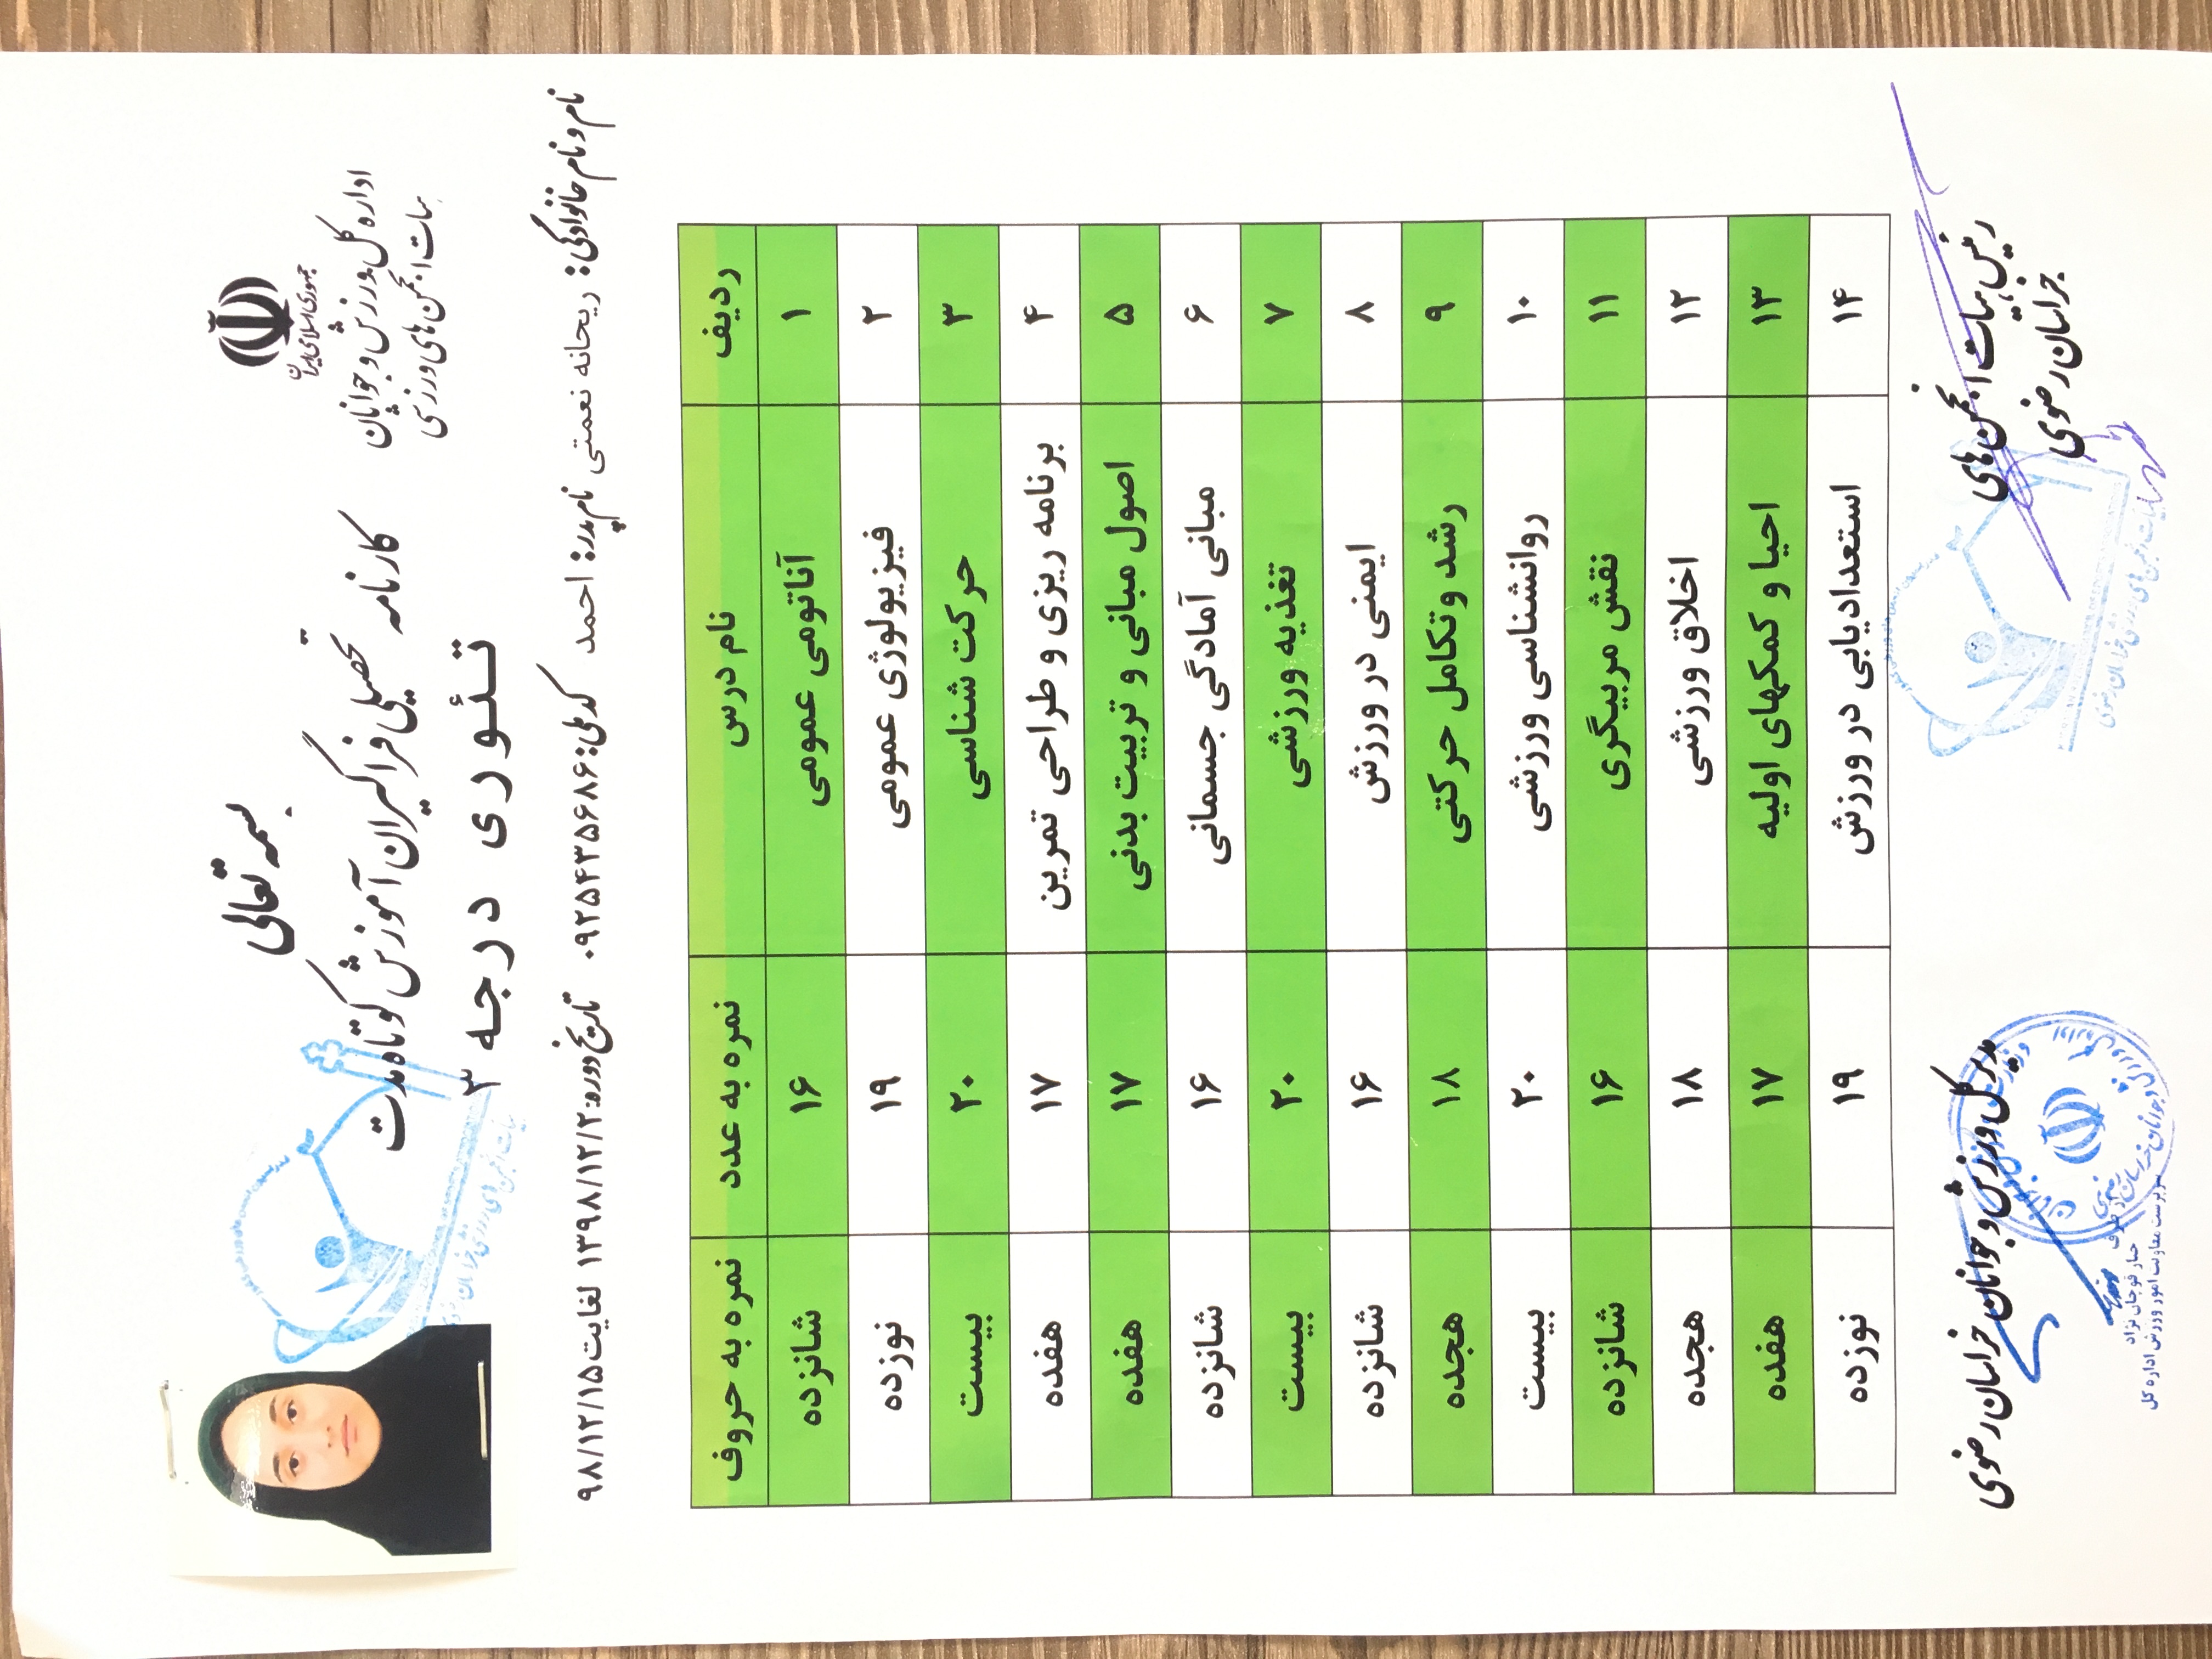 بسمه تعالی
جمهوری اسلامی ایران
اداره کل ورزش و جوانان
هیات انجمن های ورزشی
کارنامه تحصیلی فراگیران آموزش کوتاه مدت
تئوری درجه ۳
نام و نام خانوادگی: ریحانه نعمتی نام پدر: احمد کد ملی: ۰۹۲۵۴۳۵۶۸۶ تاریخ دوره: ۱۳۹۸/۱۲/۲ لغایت ۹۸/۱۲/۱۵
ردیف نام درس نمره به عدد نمره به حروف
۱ آناتومی عمومی ۱۶ شانزده
۲ فیزیولوژی عمومی ۱۹ نوزده
۳ حرکت شناسی ۲۰ بیست
۴ برنامه ریزی و طراحی تمرین ۱۷ هفده
۵ اصول مبانی و تربیت بدنی ۱۷ هفده
۶ مبانی آمادگی جسمانی ۱۶ شانزده
۷ تغذیه ورزشی ۲۰ بیست
۸ ایمنی در ورزش ۱۶ شانزده
۹ رشد و تکامل حرکتی ۱۸ هجده
۱۰ روانشناسی ورزشی ۲۰ بیست
۱۱ نقش مربیگری ۱۶ شانزده
۱۲ اخلاق ورزشی ۱۸ هجده
۱۳ احیا و کمکهای اولیه ۱۷ هفده
۱۴ استعدادیابی در ورزش ۱۹ نوزده
رئیس هیات انجمن های
خراسان رضوی
مدیر کل ورزش و جوانان خراسان رضوی
هیات انجمن های ورزشی خراسان رضوی
از طرف
جبار قوچان نژاد
سرپرست معاونت امور ورزش اداره کل